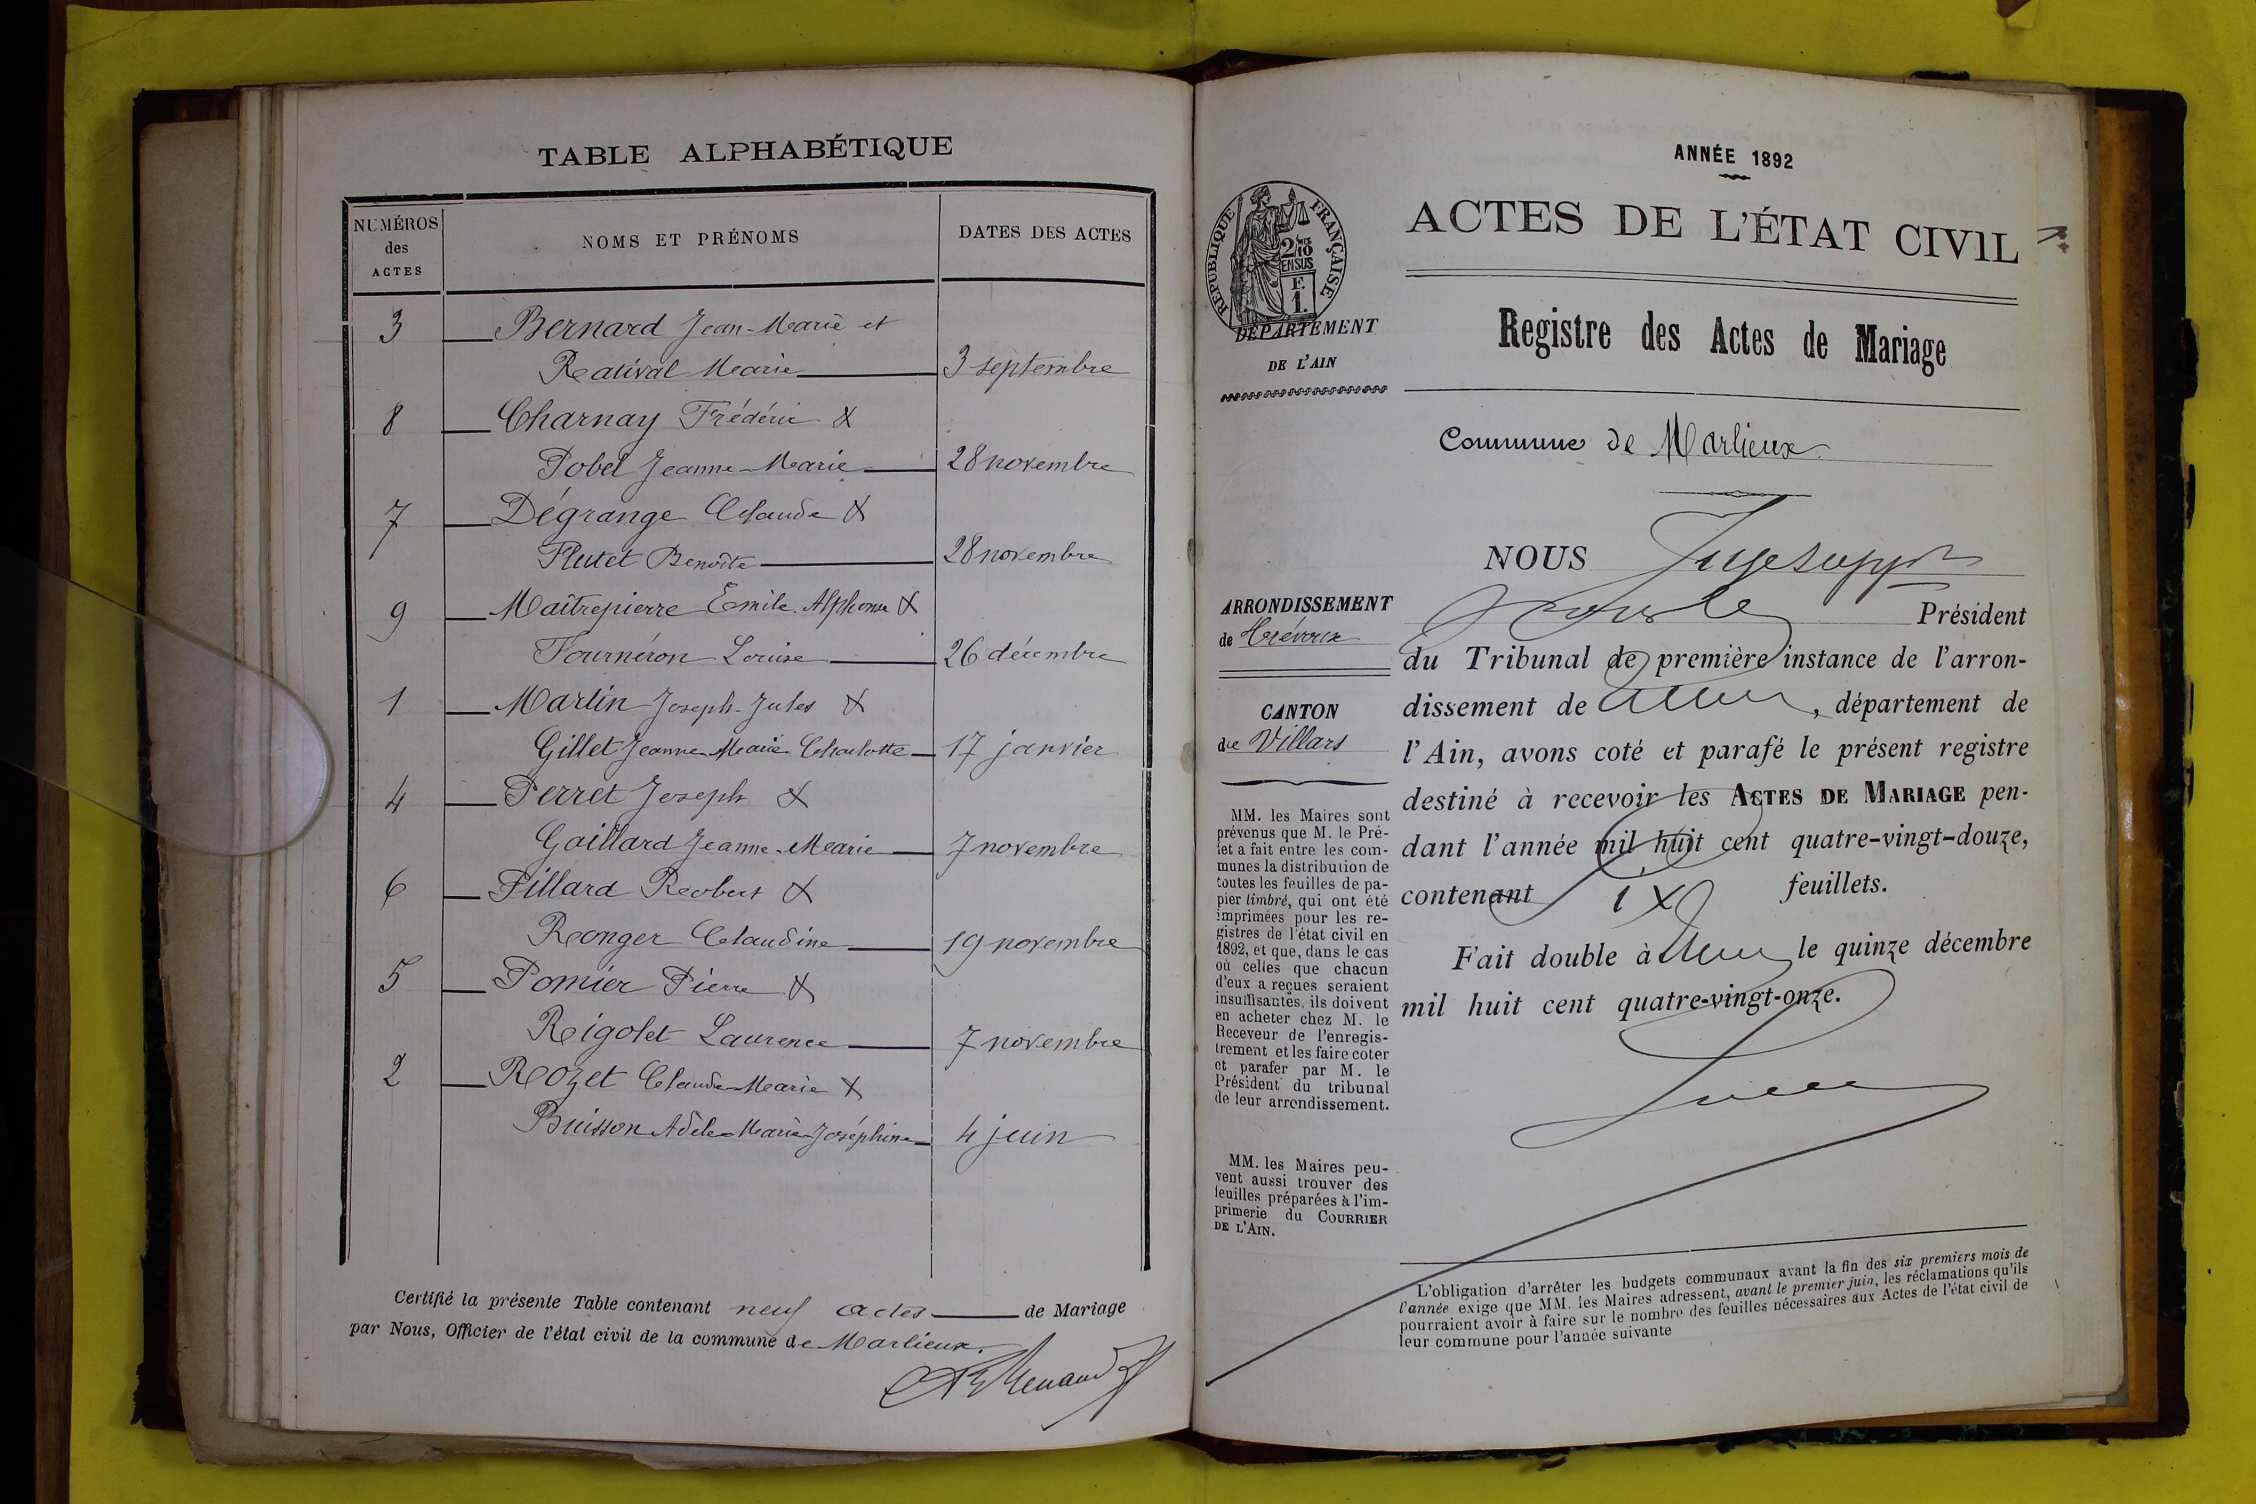 TABLE ALPHABÉTIQUE
NUMÉROS
des
ACTES
NOMS ET PRÉNOMS
DATES DES ACTES
3 Bernard Jean-Marie et
Rativat Marie 3 septembre
8 Charnay Frédéric &
Pobel Jeanne-Marie 28 novembre
7 Dégrange Claude &
Flutet Benoîte 28 novembre
9 Maîtrepierre Emile Alphonse &
Fournéron Louise 26 décembre
1 Martin Joseph-Jules &
Gillet Jeanne Marie Charlotte 17 janvier
4 Perret Joseph &
Gaillard Jeanne-Marie 7 novembre
6 Pillard Robert &
Ronger Claudine 19 novembre
5 Pomier Pierre &
Rigolet Laurence 7 novembre
2 Rozet Claude Marie &
Buisson Adèle Marie Joséphine 4 juin
Certifié la présente Table contenant neuf actes de Mariage
par Nous, Officier de l'état civil de la commune de Marlieux.
ANNÉE 1892
RÉPUBLIQUE FRANÇAISE
2/10
EN SUS
F.
1.
ACTES DE L'ÉTAT CIVIL
DÉPARTEMENT
DE L'AIN
Registre des Actes de Mariage
Commune de Marlieux
ARRONDISSEMENT
de Trévoux
CANTON
de Villars
MM. les Maires sont
prévenus que M. le Pré-
fet a fait entre les com-
munes la distribution de
toutes les feuilles de pa-
pier timbré, qui ont été
imprimées pour les re-
gistres de l'état civil en
1892, et que, dans le cas
où celles que chacun
d'eux a reçues seraient
insuffisantes, ils doivent
en acheter chez M. le
Receveur de l'enregis-
trement et les faire coter
et parafer par M. le
Président du tribunal
de leur arrondissement.
MM. les Maires peu-
vent aussi trouver des
feuilles préparées à l'im-
primerie du COURRIER
DE L'AIN.
NOUS Juge suppt
pour le Président
du Tribunal de première instance de l'arron-
dissement de , département de
l'Ain, avons coté et parafé le présent registre
destiné à recevoir les ACTES DE MARIAGE pen-
dant l'année mil huit cent quatre-vingt-douze,
contenant feuillets.
Fait double à le quinze décembre
mil huit cent quatre-vingt-onze.
L'obligation d'arrêter les budgets communaux avant la fin des six premiers mois de
l'année exige que MM. les Maires adressent, avant le premier juin, les réclamations qu'ils
pourraient avoir à faire sur le nombre des feuilles nécessaires aux Actes de l'état civil de
leur commune pour l'année suivante